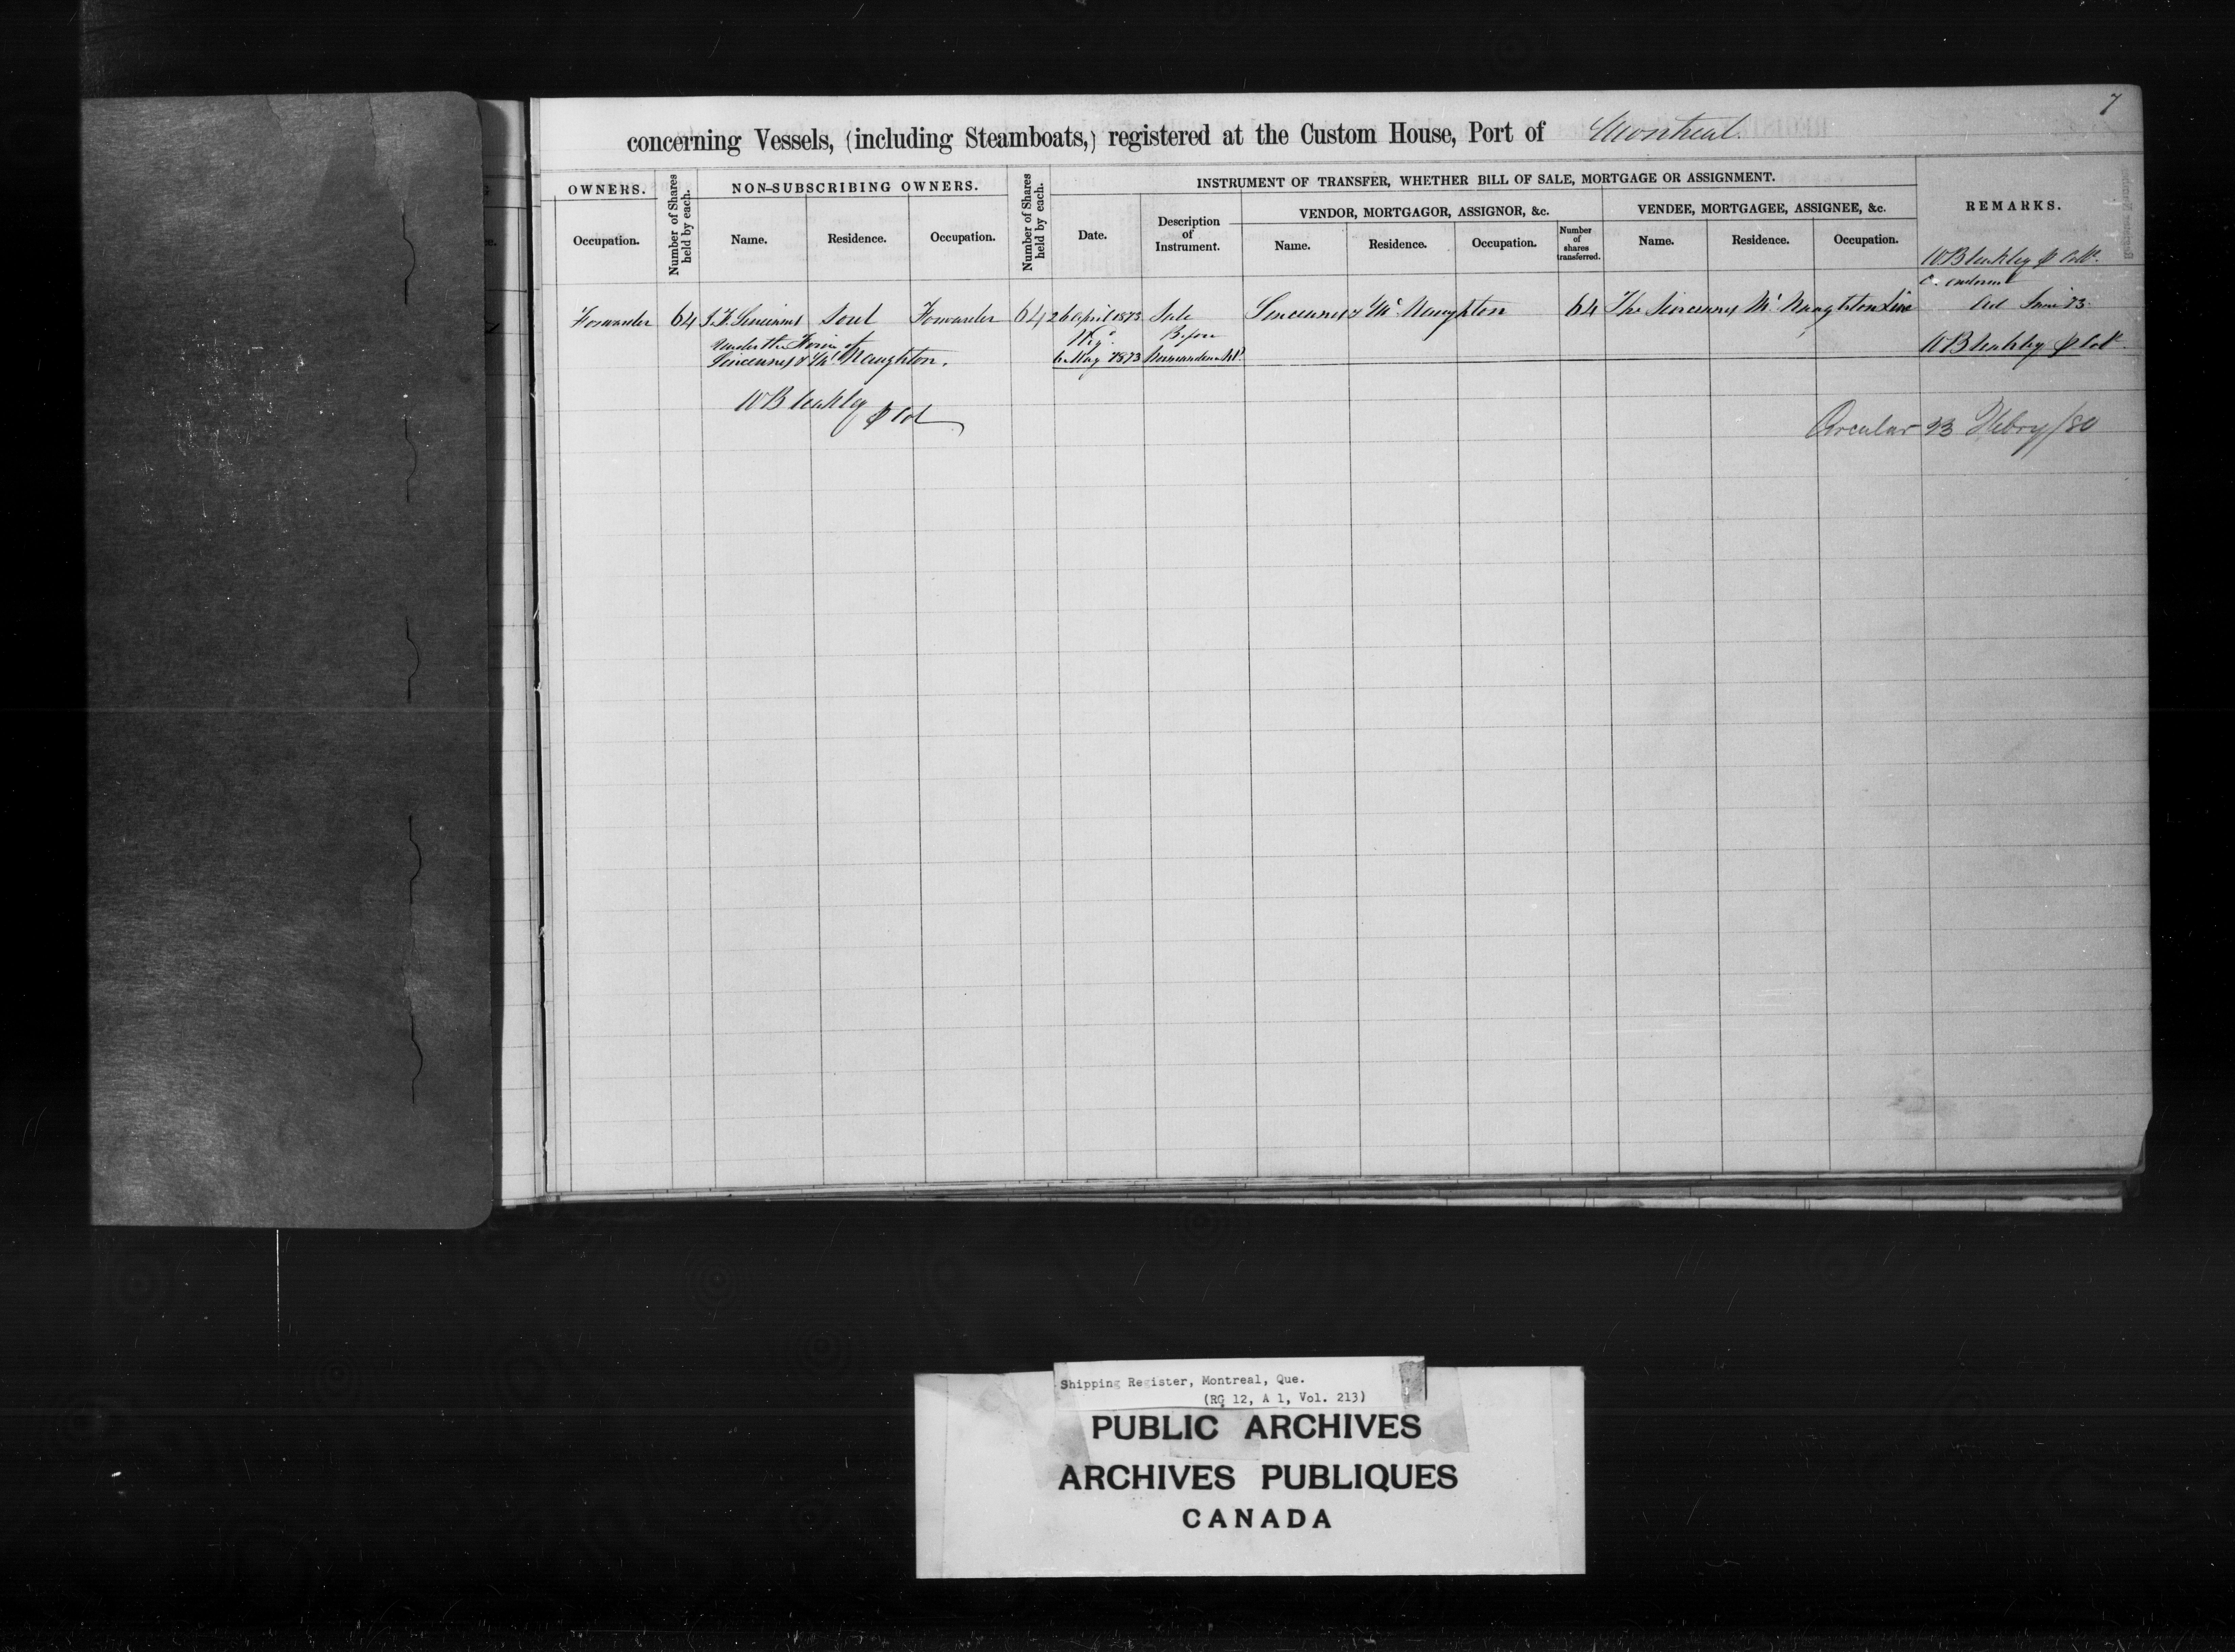 7
concerning Vessels, (including Steamboats,) registered at the Custom House, Port of Montreal.
OWNERS.
Number of Shares held by each.
NON-SUBSCRIBING OWNERS.
Number of Shares held by each.
INSTRUMENT OF TRANSFER, WHETHER BILL OF SALE, MORTGAGE OR ASSIGNMENT.
REMARKS.
VENDOR, MORTGAGOR, ASSIGNOR, &c.
VENDEE, MORTGAGEE, ASSIGNEE, &c.
Occupation.
Name.
Residence.
Occupation.
Date.
Description of Instrument.
Name.
Residence.
Occupation.
Number of shares transferred.
Name.
Residence.
Occupation.
W Bleakley
Forwarder 64 J. F. Sincennes Sorel Forwarder 64 26 April 1873 Sale Sincennes & McNaughton 64 The Sincennes McNaughton Line June 73
under the Firm of Before
Sincennes & McNaughton. 6 May 1873 W Bleakley
W Bleakley
Circular 23 Febry/80
Shipping Register, Montreal, Que.
(RG 12, A 1, Vol. 213)
PUBLIC ARCHIVES
ARCHIVES PUBLIQUES
CANADA